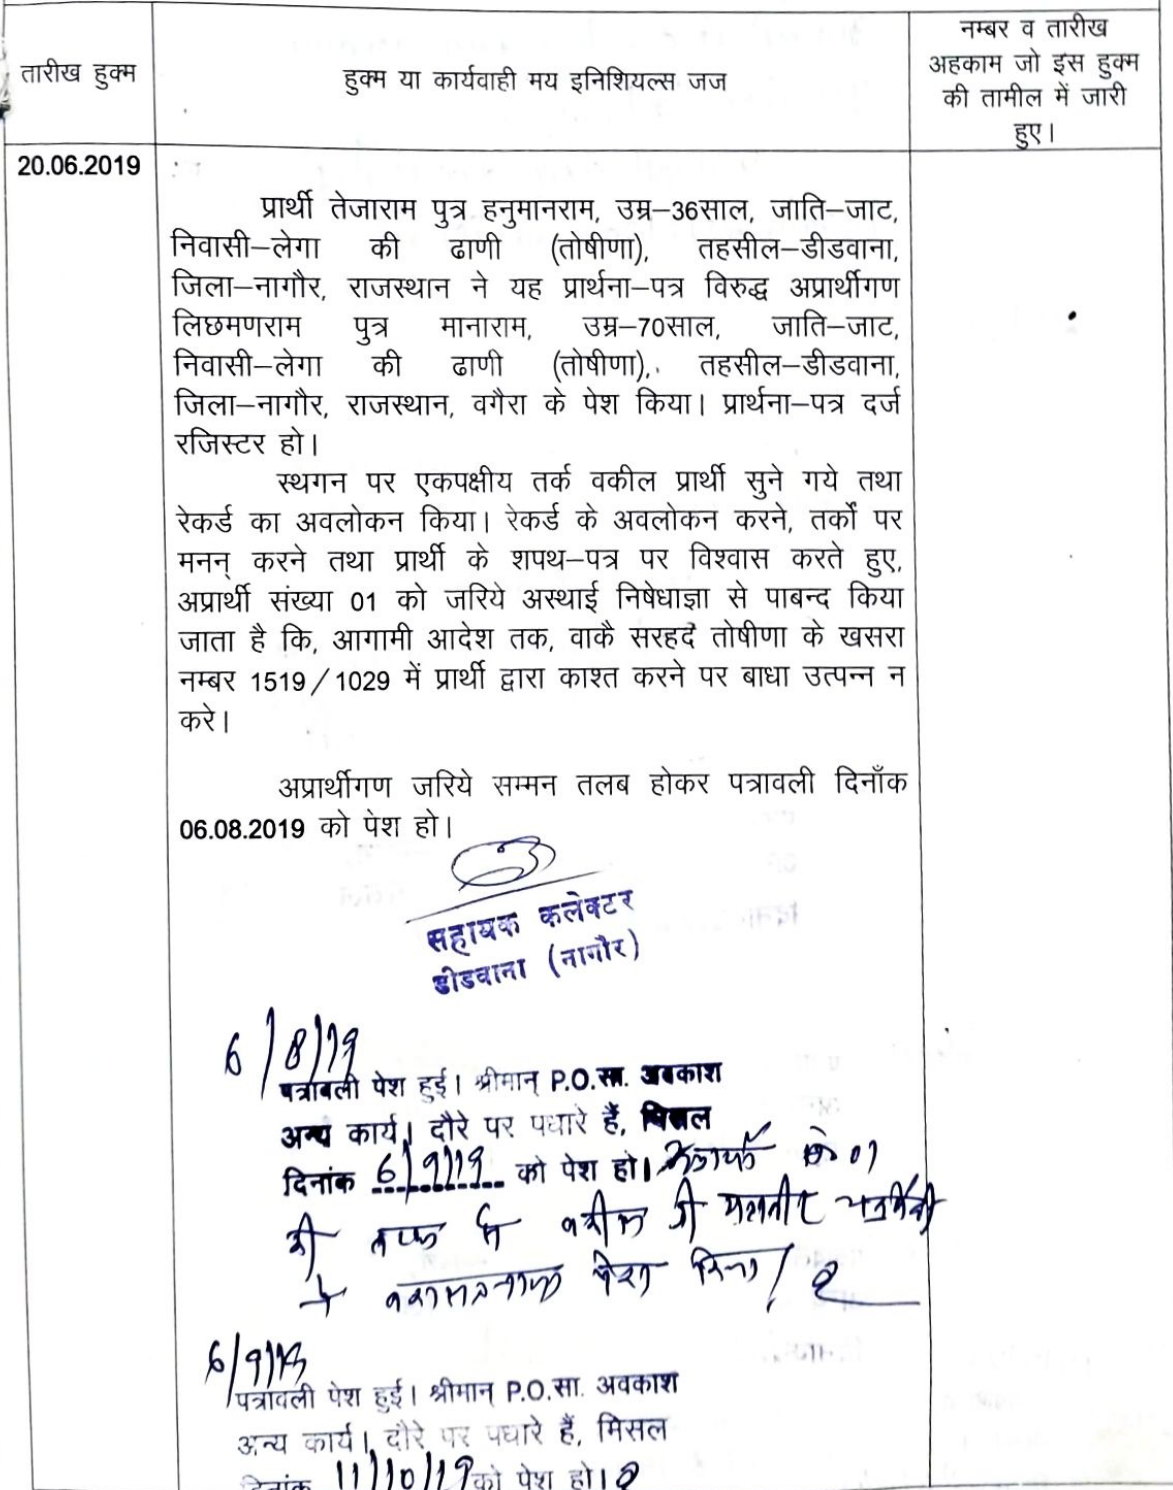 तारीख हुक्म
हुक्म या कार्यवाही मय इनिशियल्स जज
नम्बर व तारीख
अहकाम जो इस हुक्म
की तामील में जारी
हुए।
20.06.2019
प्रार्थी तेजाराम पुत्र हनुमानराम, उम्र–36साल, जाति–जाट,
निवासी–लेगा की ढाणी (तोषीणा), तहसील–डीडवाना,
जिला–नागौर, राजस्थान ने यह प्रार्थना–पत्र विरुद्ध अप्रार्थीगण
लिछमणराम पुत्र मानाराम, उम्र–70साल, जाति–जाट,
निवासी–लेगा की ढाणी (तोषीणा), तहसील–डीडवाना,
जिला–नागौर, राजस्थान, वगैरा के पेश किया। प्रार्थना–पत्र दर्ज
रजिस्टर हो।
स्थगन पर एकपक्षीय तर्क वकील प्रार्थी सुने गये तथा
रेकर्ड का अवलोकन किया। रेकर्ड के अवलोकन करने, तर्कों पर
मनन् करने तथा प्रार्थी के शपथ–पत्र पर विश्वास करते हुए,
अप्रार्थी संख्या 01 को जरिये अस्थाई निषेधाज्ञा से पाबन्द किया
जाता है कि, आगामी आदेश तक, वाकै सरहदे तोषीणा के खसरा
नम्बर 1519/1029 में प्रार्थी द्वारा काश्त करने पर बाधा उत्पन्न न
करे।
अप्रार्थीगण जरिये सम्मन तलब होकर पत्रावली दिनाँक
06.08.2019 को पेश हो।
सहायक कलेक्टर
डीडवाना (नागौर)
6/8/19
पत्रावली पेश हुई। श्रीमान् P.O.सा. अवकाश
अन्य कार्य। दौरे पर पधारे हैं, मिसल
दिनांक 6/9/19 को पेश हो। 01
की तरफ से वकील श्री
ने वकालतनामा पेश किया।
6/9/19
पत्रावली पेश हुई। श्रीमान् P.O.सा. अवकाश
अन्य कार्य। दौरे पर पधारे हैं, मिसल
दिनांक 11/10/19 को पेश हो।